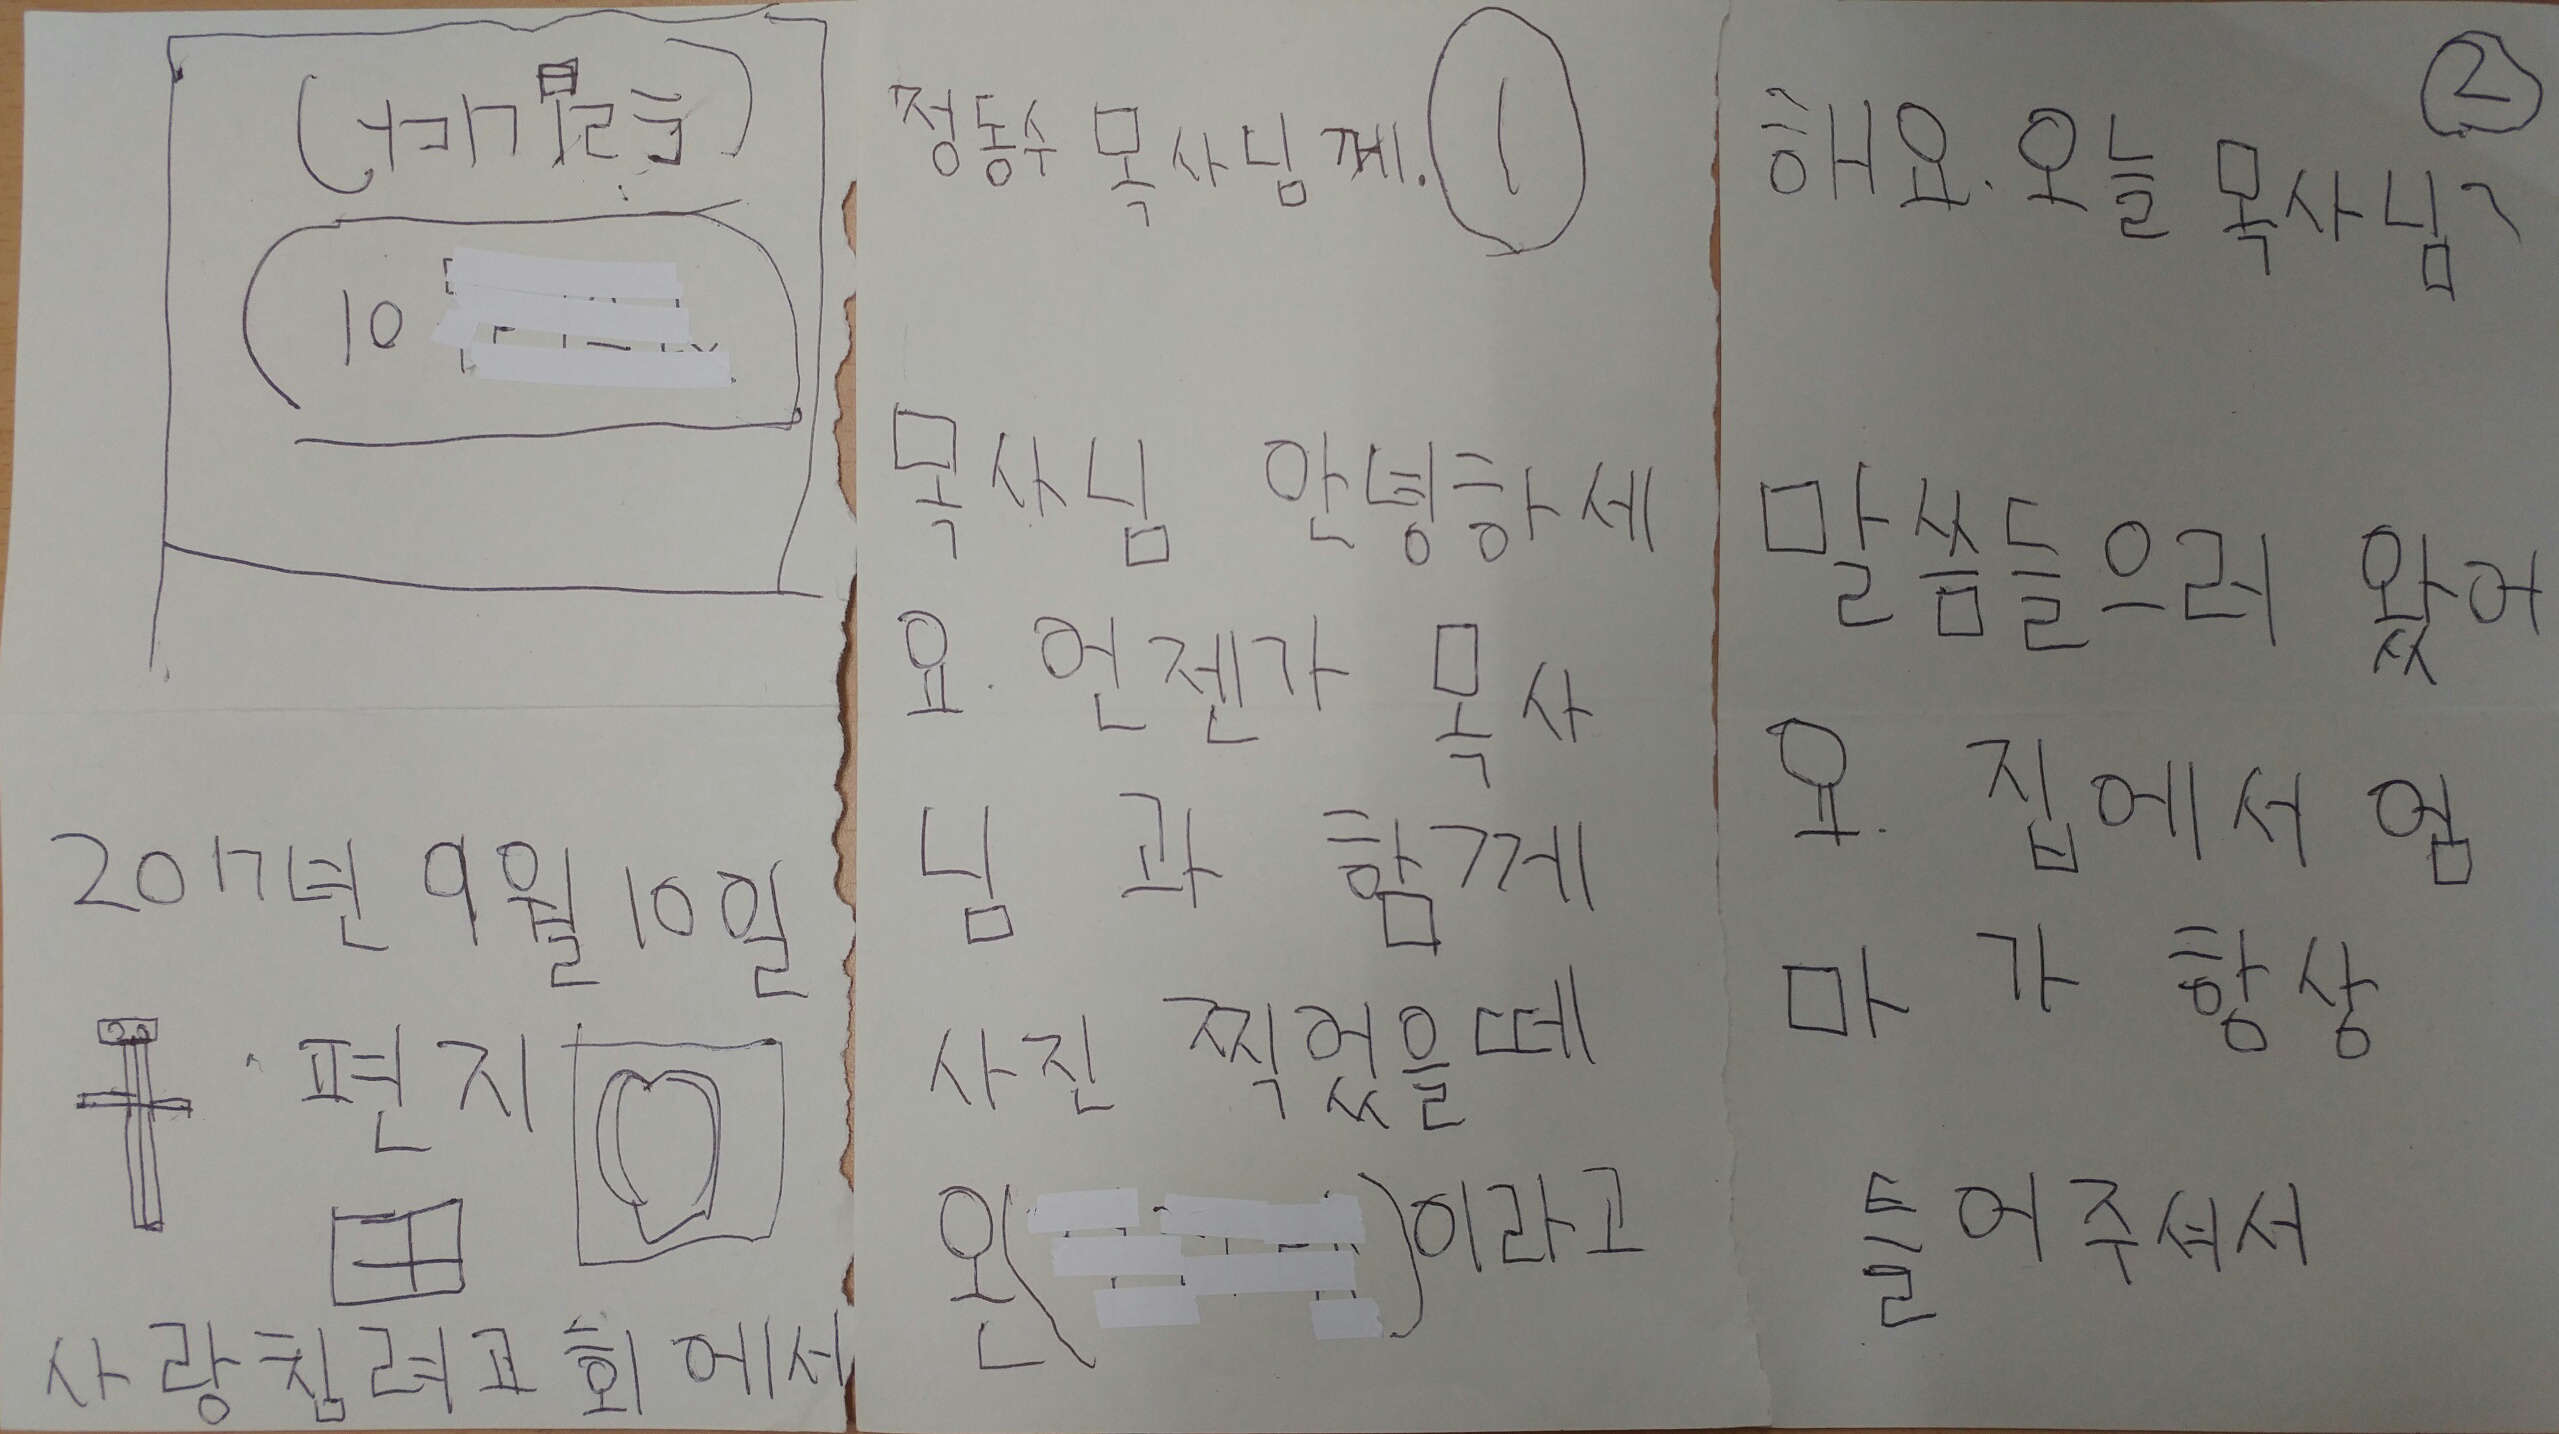 10
2017년 9월 10일
편지
사랑침례교회에서
정동수 목사님께.
1
목사님 안녕하세
요. 언젠가 목사
님 과 함께
사진 찍었을떼
온( )이라고
2
해요. 오늘 목사님
말씀들으러 왔어
요. 집에서 엄
마 가 항상
들어주셔서